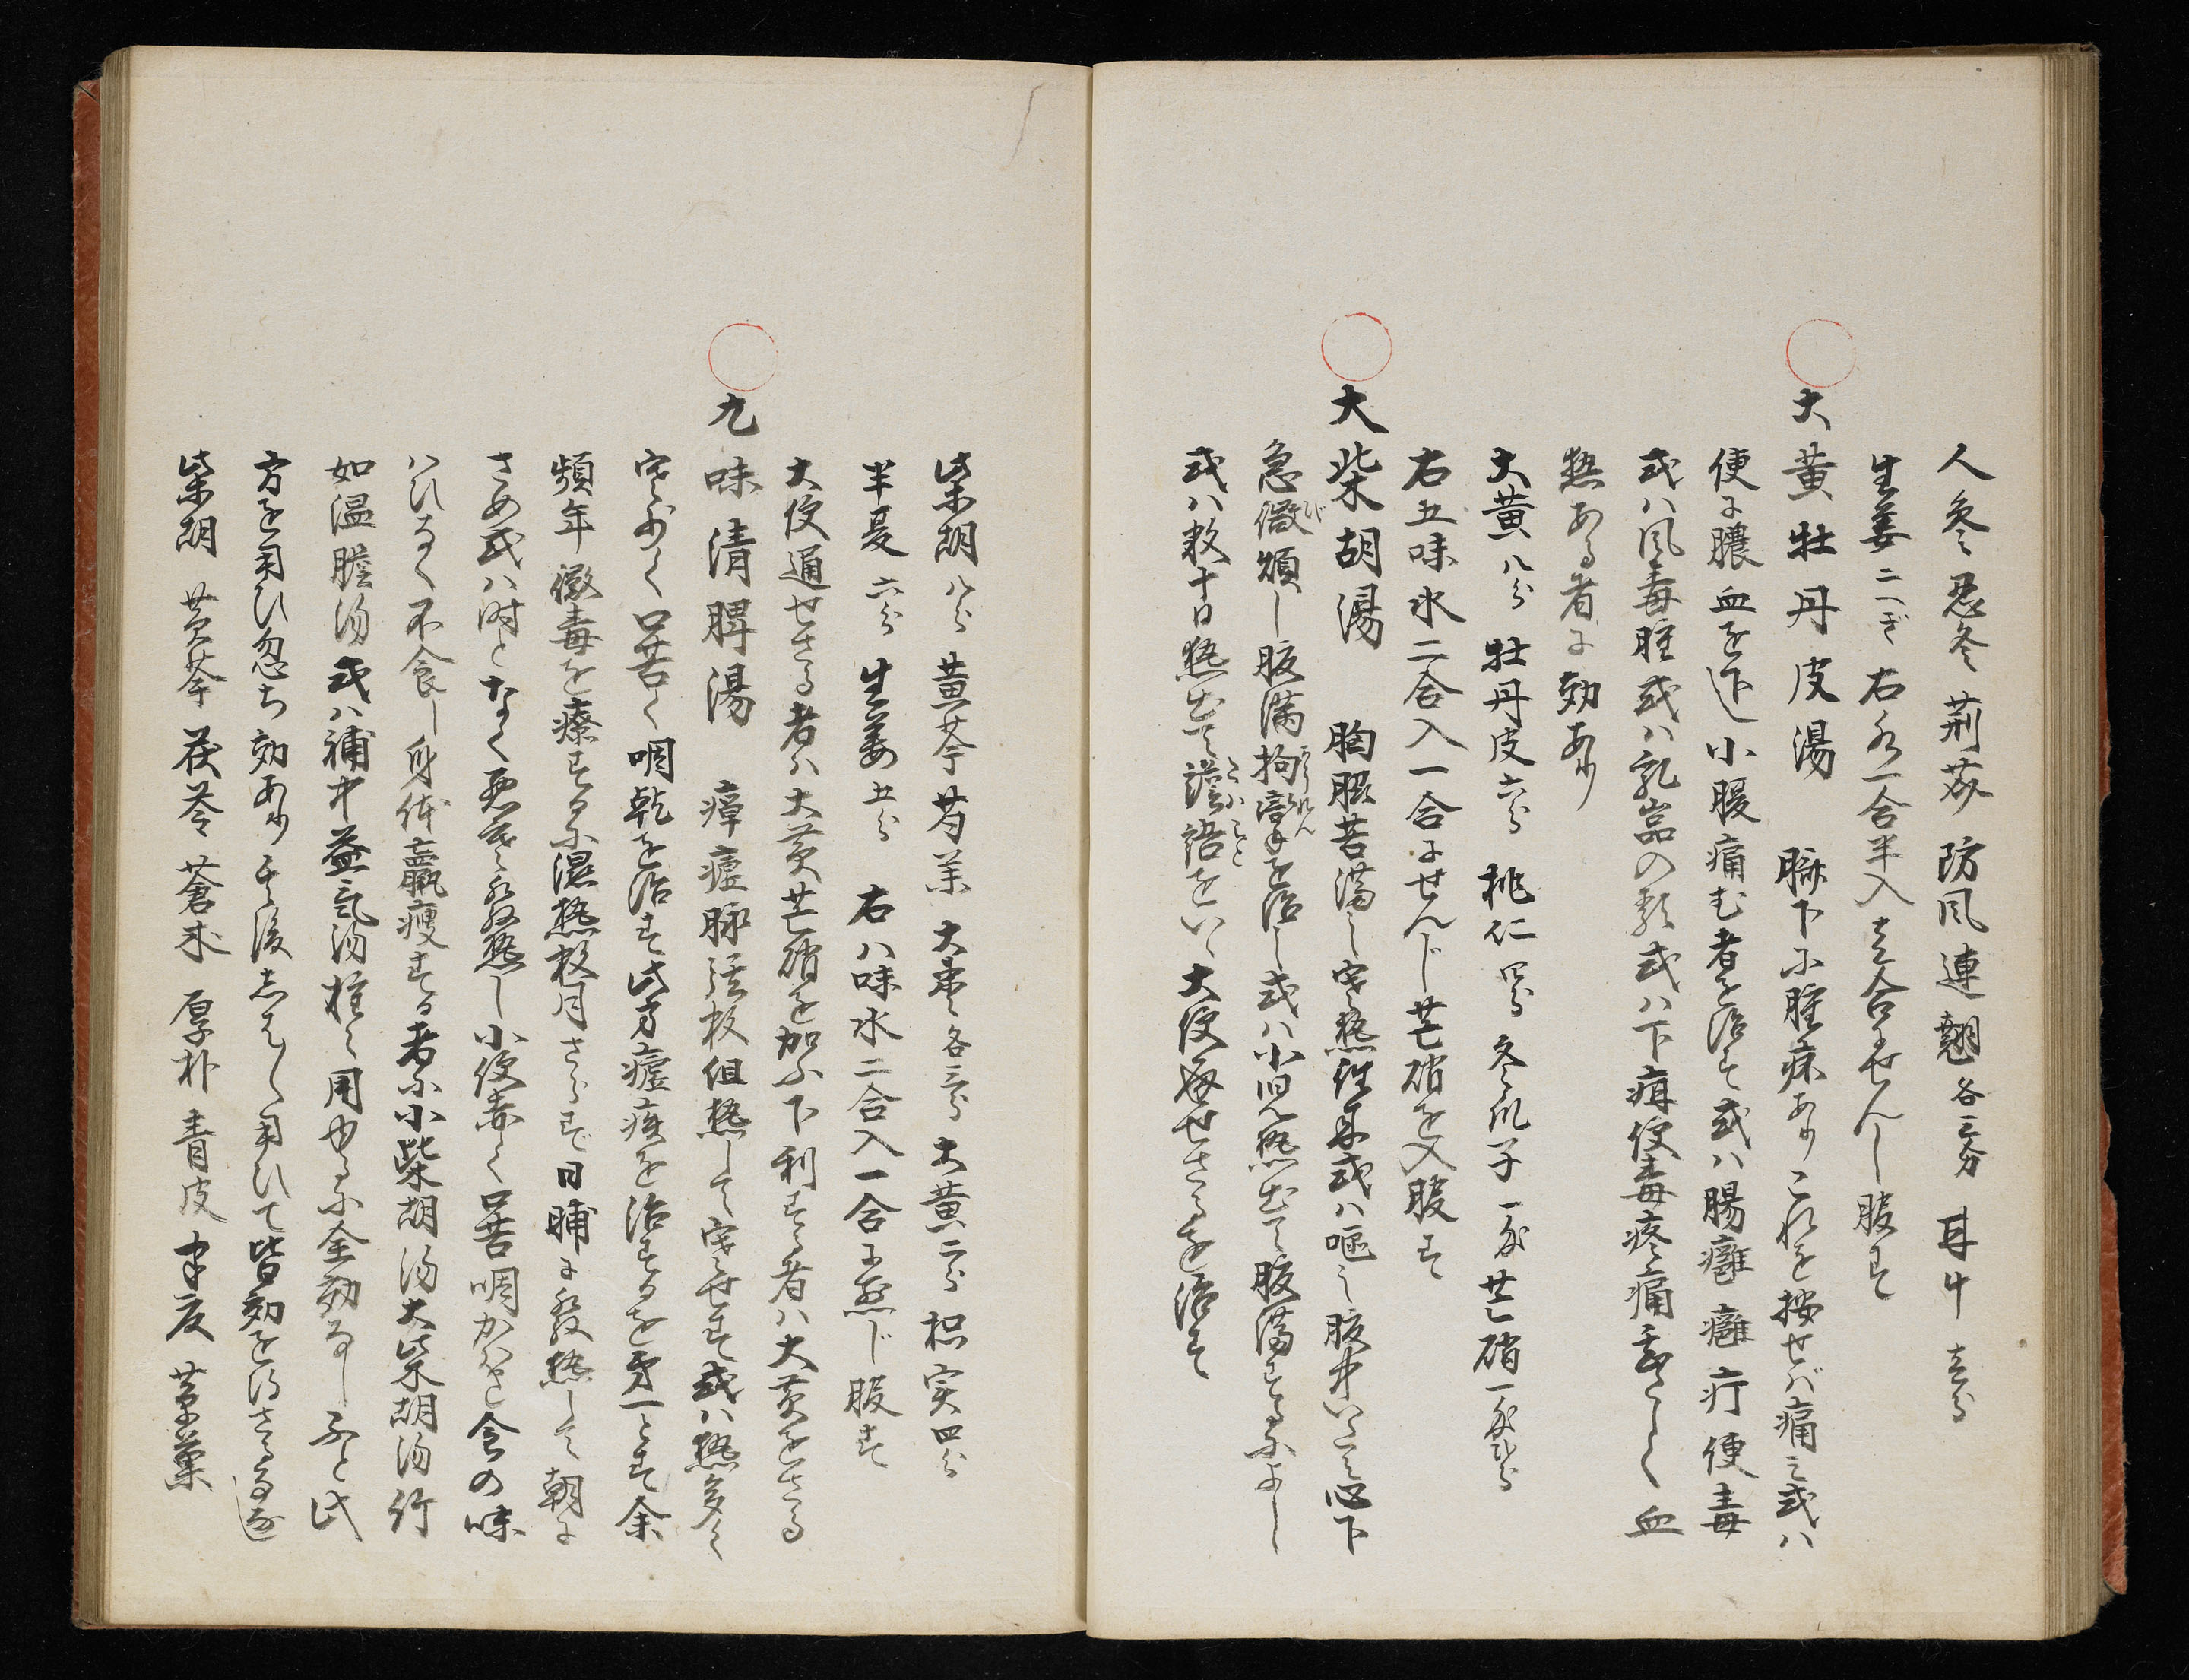 人參 忍冬 荊芥 防風 連翹 各三分 甘中 壱分
生姜 二へぎ 右水一合半入壱合にせんし服す
大黄牡丹皮湯 臍下に腫痛ありこれを按せバ痛ミ或ハ
便に膿血を下し小腹痛む者を治す或ハ腸癰癰疔便毒
或ハ風毒腫或ハ乳岩の類或ハ下疳便毒疼痛甚しく血
熱ある者に効あり
大黄 八分 牡丹皮 六分 桃仁 四分 冬瓜子 一匁 芒硝 一匁
右五味水二合入一合にせんじ芒硝を入服す
大柴胡湯 胸脇苦満し寒熱往来或ハ嘔し腹中いたミ心下
急微煩し腹満拘攣を治し或ハ小児熱出て腹満するによし
或ハ数十日熱出て譫語をいゝ大便通せさるを治す
柴胡 八分 黄芩 芍薬 大棗 各三分 大黄 二分 枳実 四分
半夏 六分 生姜 五分 右八味水二合入一合に煎じ服す
大便通せさる者ハ大黄芒硝を加ふ下利する者ハ大黄をさる
九味清脾湯 瘴瘧脉弦数但熱して寒せす或ハ熱多く
寒少く口苦く咽乾を治す此方瘧疾を治するを第一とす余
頻年黴毒を療するに湿熱数月さらず日晡に発熱して朝に
さめ或ハ時となく悪寒発熱し小便赤く口苦咽かハき食の味
ハひなく不食し身体羸瘦する者に小柴胡湯大柴胡湯竹
如温膽湯或ハ補中益気湯種々用ゆるに全効なしふと此
方を用ひ忽ち効あり其後しハしハ用ひて皆効を得さるハ
柴胡 黄芩 茯苓 蒼朮 厚朴 青皮 半夏 草菓